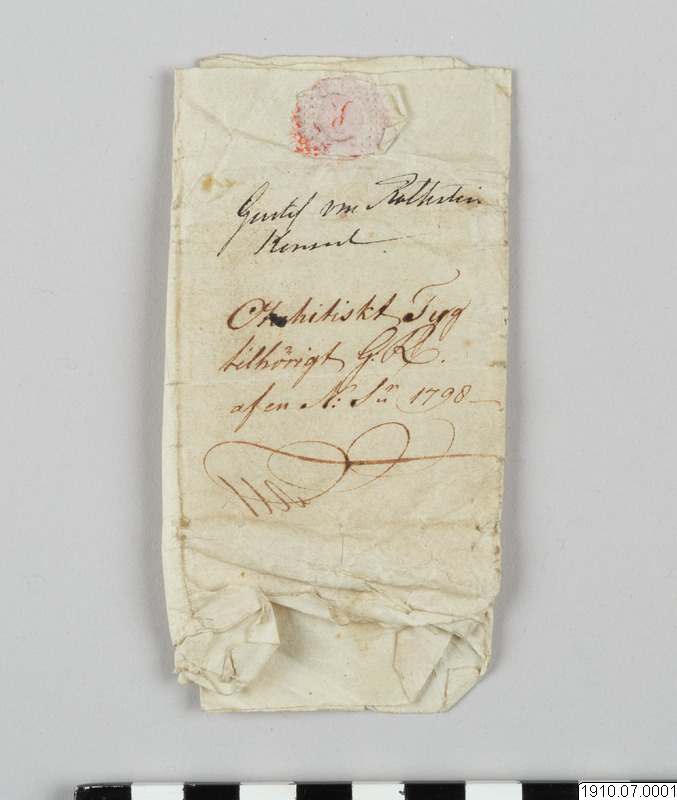 Gustaf von Rothstein
Konsul
Otahitiskt Tyg
tilhörigt G: R.
af en N: Sun 1798
1910.07.0001